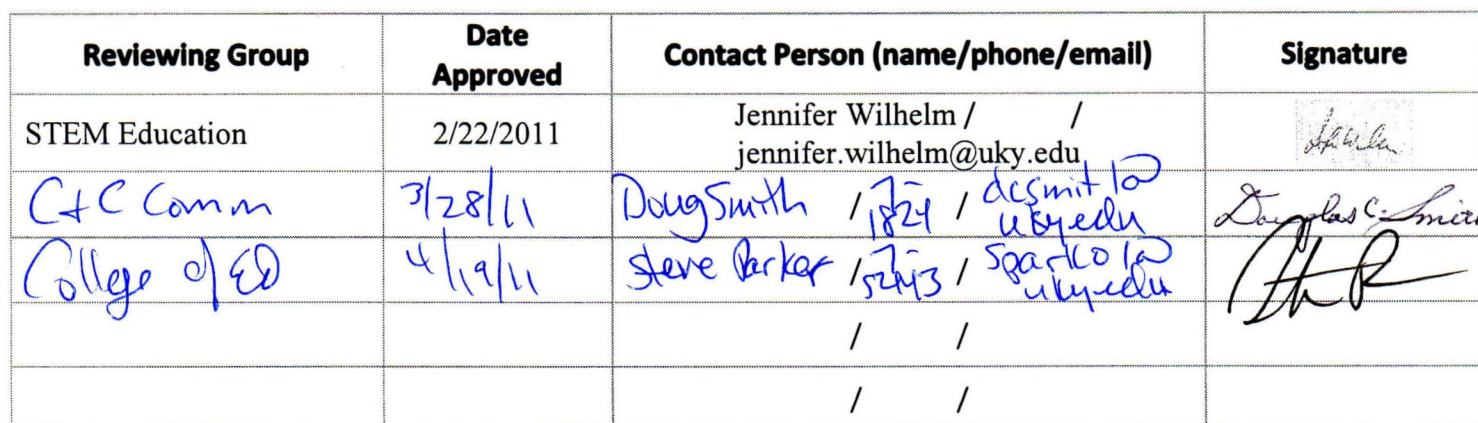 Reviewing Group Date Approved Contact Person (name/phone/email) Signature
STEM Education 2/22/2011 Jennifer Wilhelm / /
jennifer.wilhelm@uky.edu
C+C Comm 3/28/11 Doug Smith / 7-1824 / dcsmit1@uky.edu Douglas C. Smith
College of ED 4/19/11 Steve Parker / /
/ /
/ /